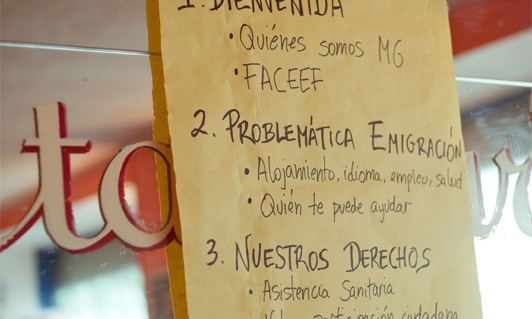 1. BIENVENIDA
• Quiénes somos MG
• FACEEF
2. PROBLEMÁTICA EMIGRACIÓN
• Alojamiento, idioma, empleo, salud
• Quién te puede ayudar
3. NUESTROS DERECHOS
• Asistencia Sanitaria
participación ciudadana
ta